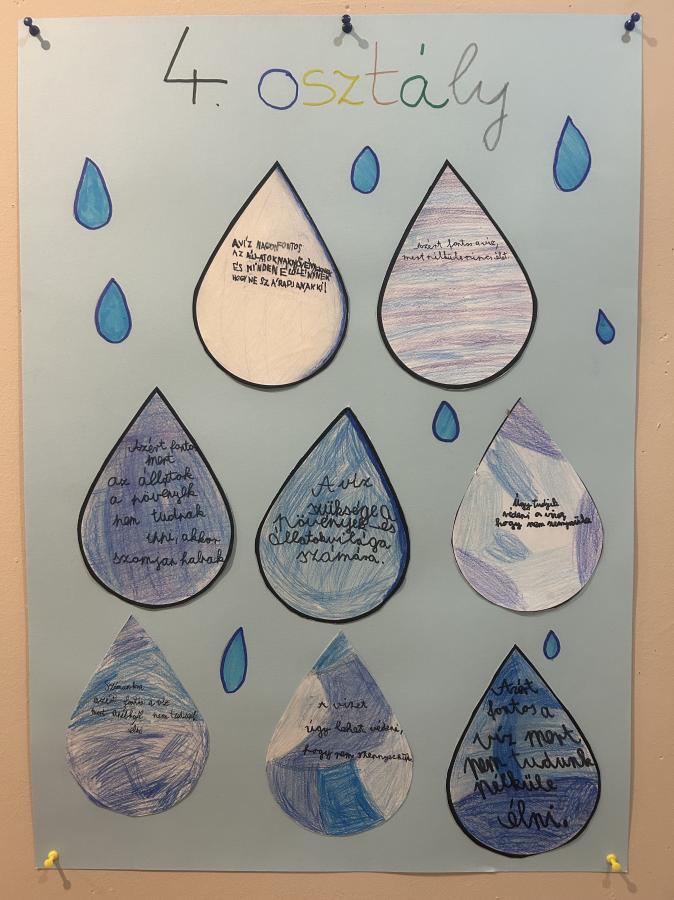 4. osztály
A VÍZ NAGYON FONTOS
AZ ÁLLATOKNAK NÖVÉNYEKNEK
ÉS MINDEN ÉLŐLÉNYNEK
HOGY NE SZÁRADJANAK KI!
Azért fontos a víz,
mert nélküle nincs élet
Azért fontos
mert
az állatok
a növények
nem tudnak
inni, akkor
szomjan halnak
A víz
szükséges a
növények és
állatvilága
számára.
Úgy tudjuk
védeni a vizet,
hogy nem szennyezzük
Számunkra
azért fontos a víz
mert anélkül nem tudunk
élni
A vizet
úgy lehet védeni,
hogy nem szennyezzük
Azért
fontos a
víz mert
nem tudunk
nélküle
élni.